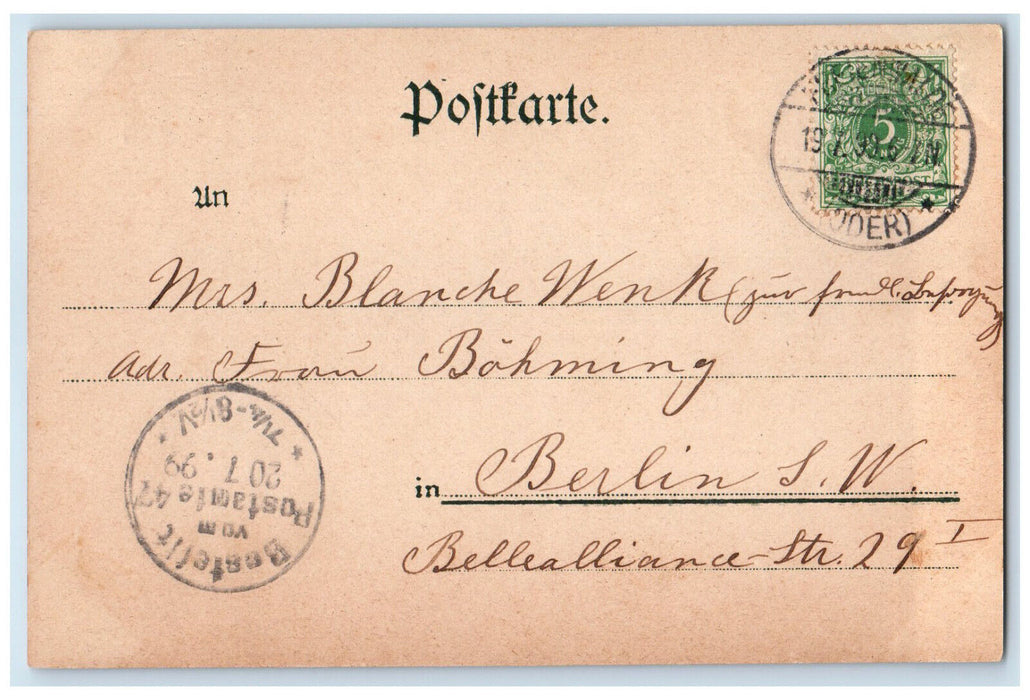 Postkarte.
An
5
19 7. 99. 6-7N
(ODER)
Mrs. Blanche Wenk (zur frndl. Besorgung
Adr. Frau Böhming
in Berlin S. W.
Bellealliance-Str. 29 I
Bestellt
vom
Postamte 47
20 7. 99
7¼-8½V